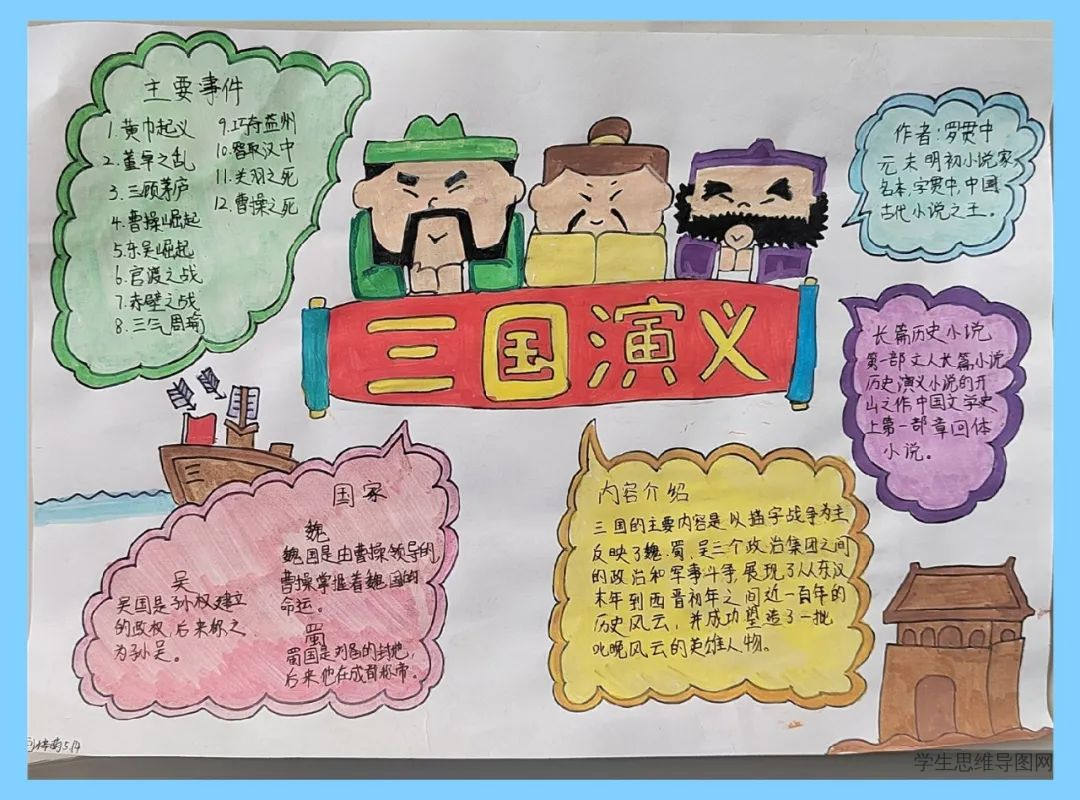 主要事件
1.黄巾起义
2.董卓之乱
3.三顾茅庐
4.曹操崛起
5.东吴崛起
6.官渡之战
7.赤壁之战
8.三气周瑜
9.巧夺益州
10.智取汉中
11.关羽之死
12.曹操之死
三国演义
作者:罗贯中
元末明初小说家
名本,字贯中,中国
古代小说之王。
长篇历史小说
第一部文人长篇小说
历史演义小说的开
山之作中国文学史
上第一部章回体
小说。
三
国家
魏
魏国是由曹操领导的
曹操掌握着魏国的
命运。
吴
吴国是孙权建立
的政权,后来称之
为孙吴。
蜀
蜀国是刘备的封地,
后来他在成都称帝。
内容介绍
三国的主要内容是以描字战争为主
反映了魏.蜀.吴三个政治集团之间
的政治和军事斗争,展现了从东汉
末年到西晋初年之间近一百年的
历史风云,并成功塑造了一批
叱咤风云的英雄人物。
5.14
学生思维导图网